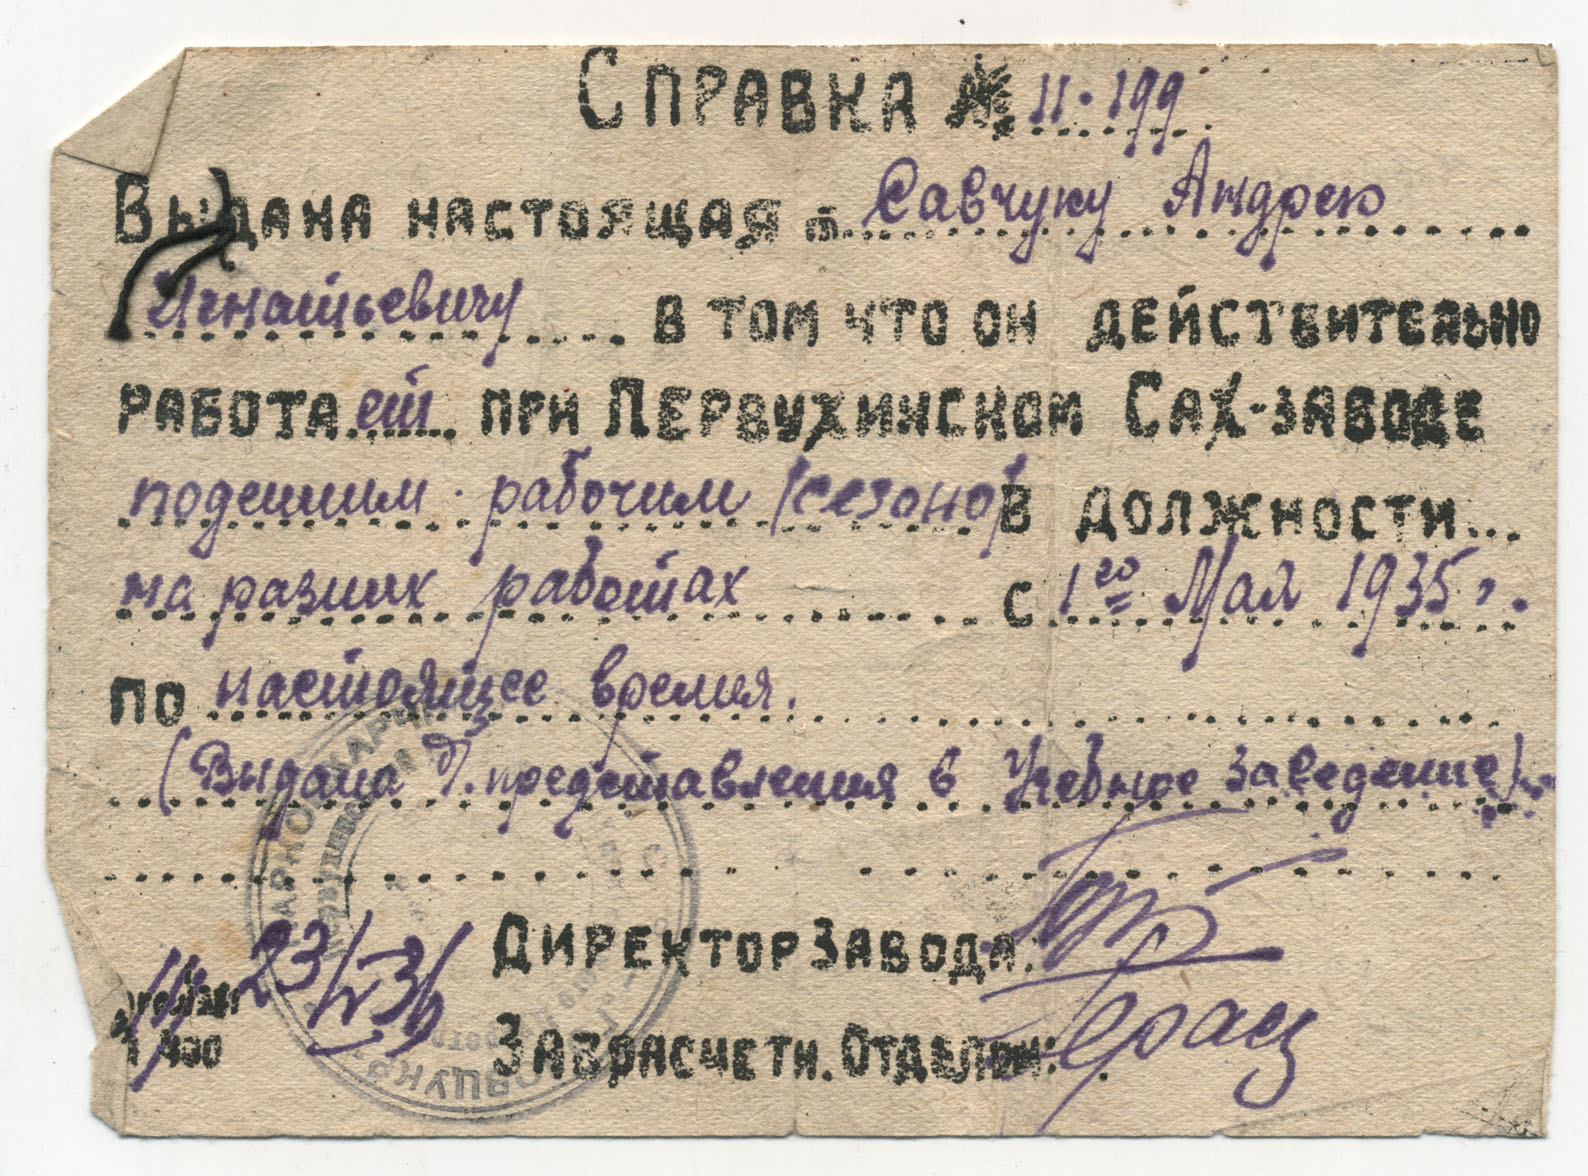 Справка № 11-199
Выдана настоящая т. Савчуку Андрею
Игнатьевичу в том что он действительно
работает при Первухинском Сах-заводе
поденним рабочим (сезоно) в должности
на разних работах с 1го Мая 1935 г.
по настоящее время.
(Выдана д/. представления в Учебное Заведение)
Директор завода:
23/V-36
Заврасчетн. Отделом: